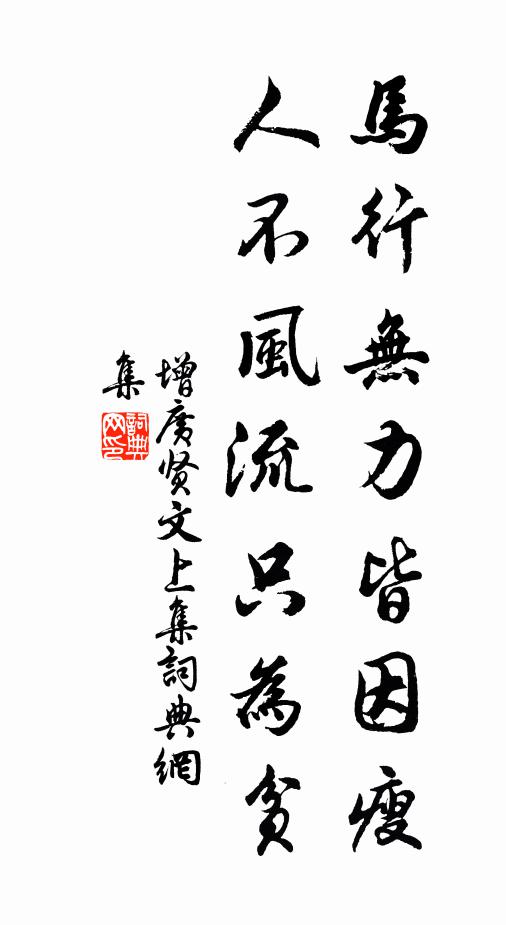 馬行無力皆因瘦
人不風流只為貧
增廣贤文上集詞典網
集
詞典网印